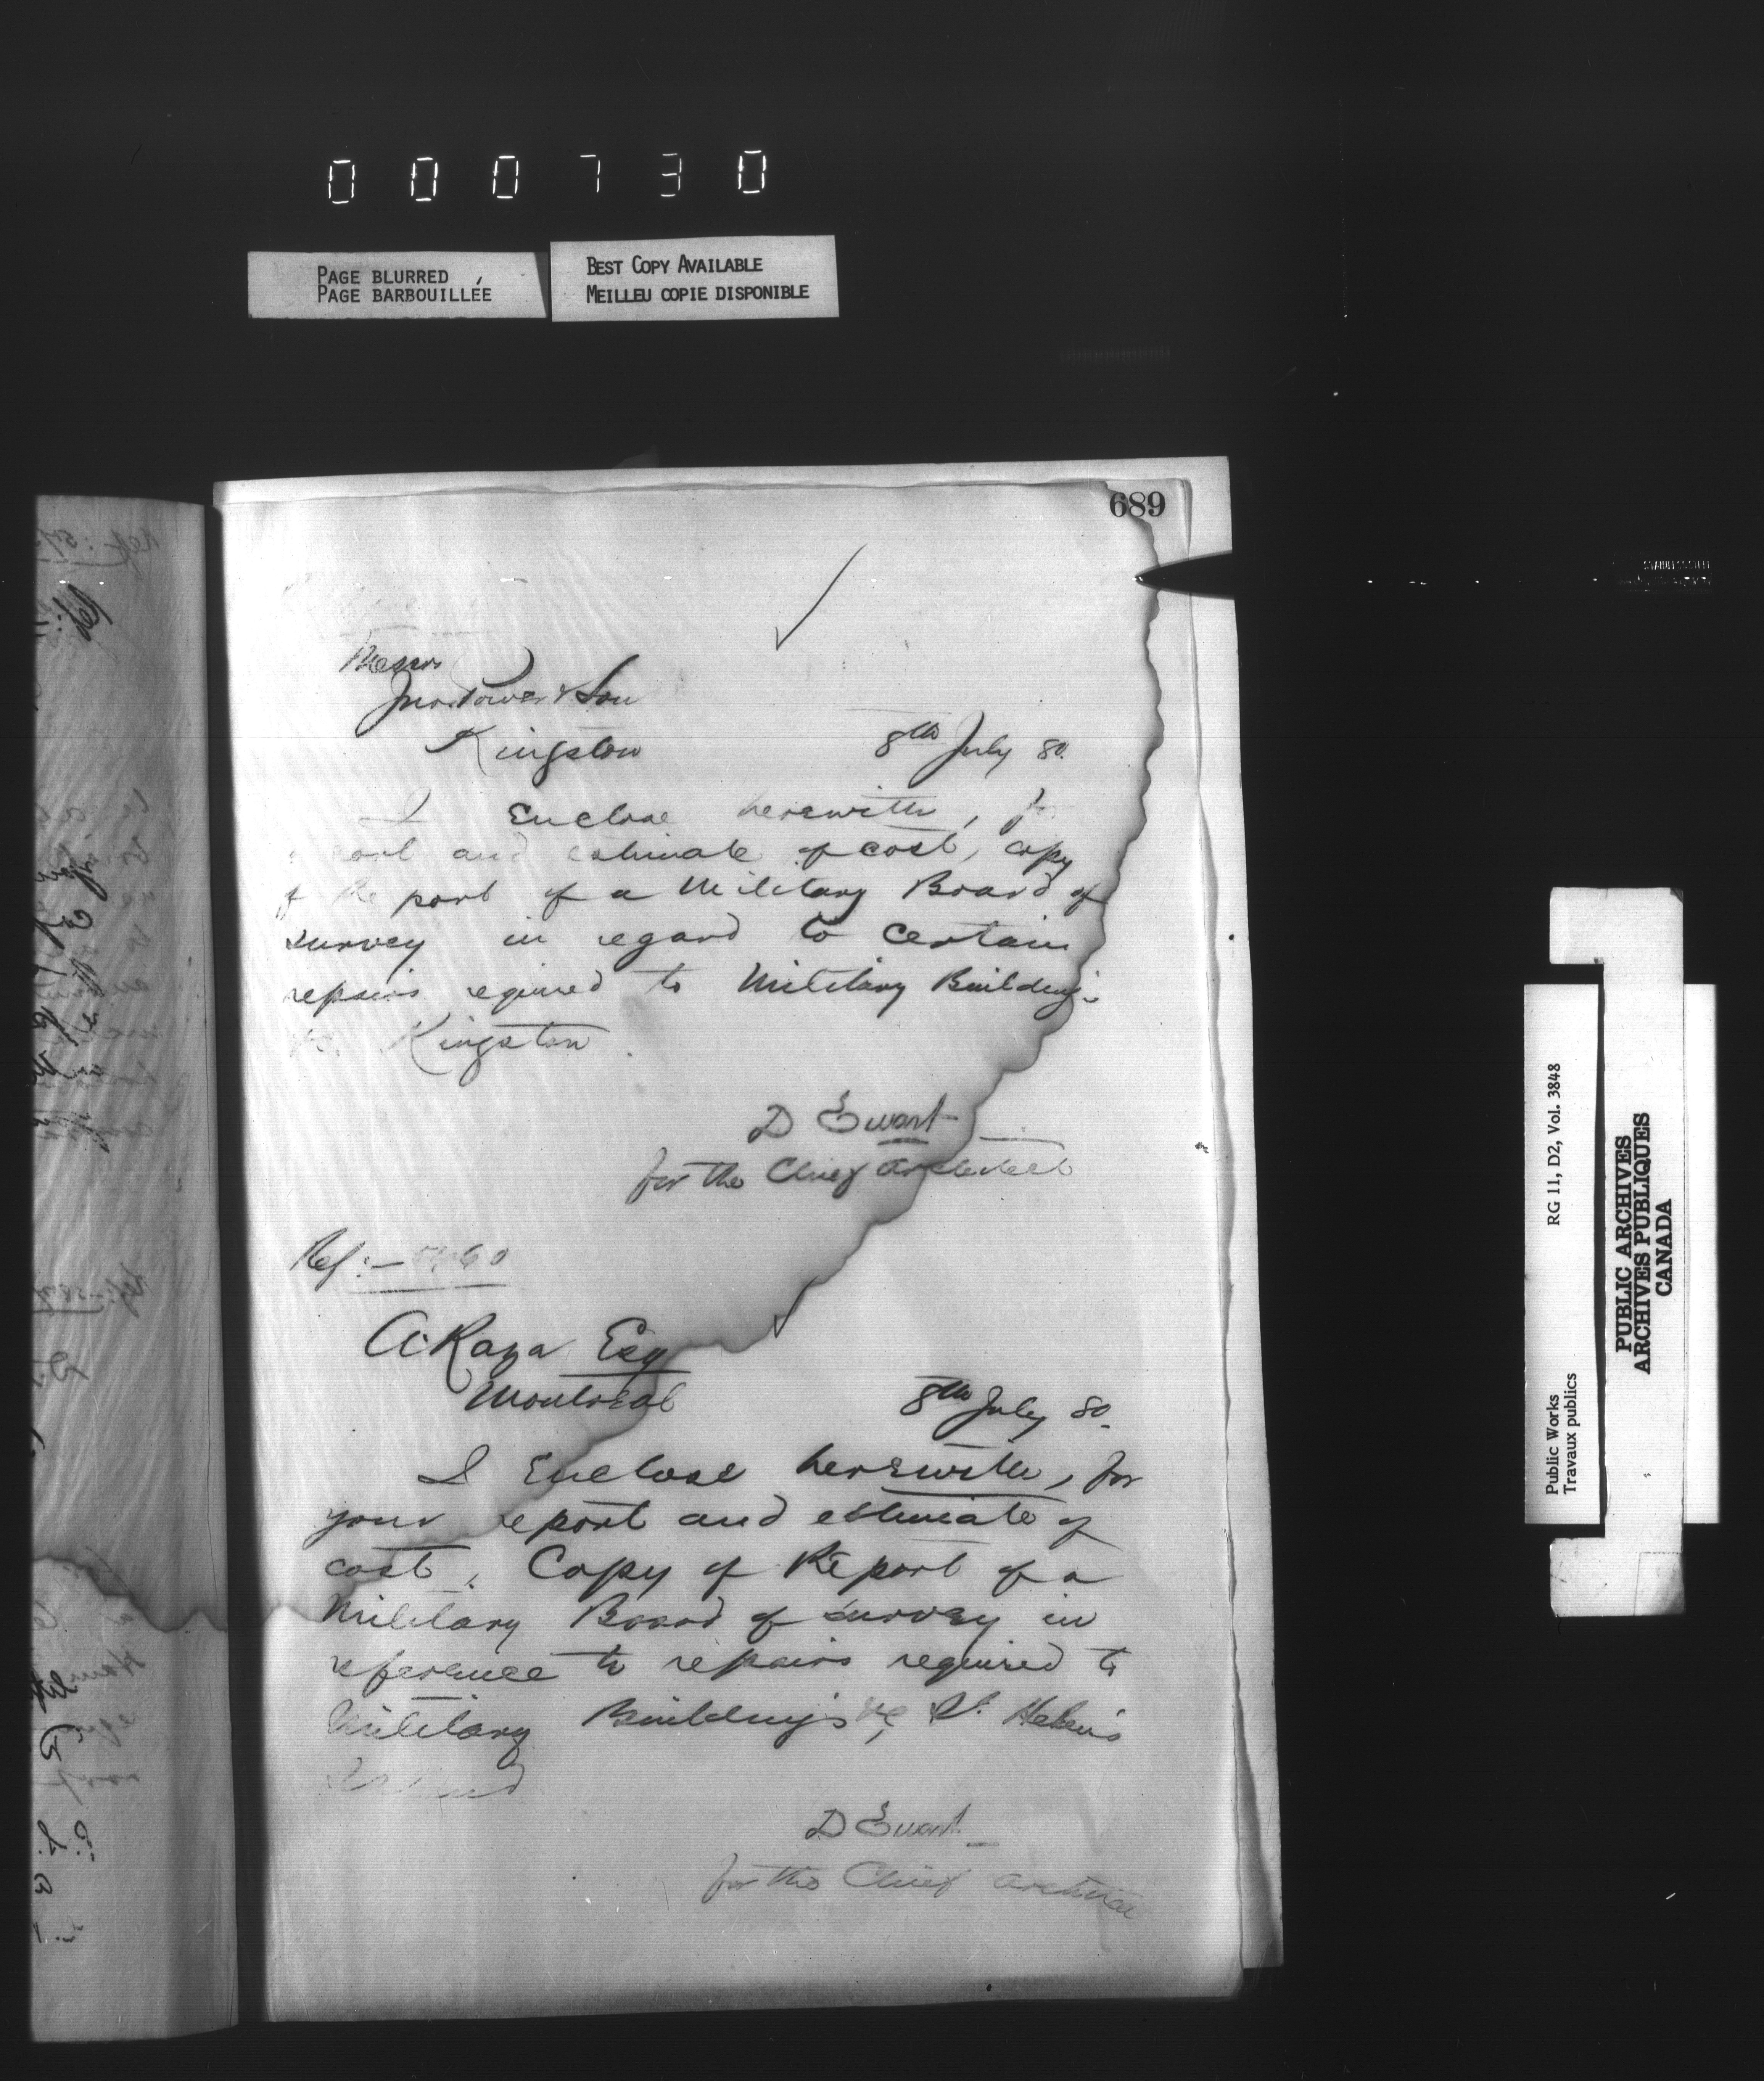 000730
PAGE BLURRED
PAGE BARBOUILLÉE
BEST COPY AVAILABLE
MEILLEU COPIE DISPONIBLE
689
Messrs
Jno. Power & Son
Kingston 8th July 80.
I Enclose herewith, for
and estimate of cost, copy
of Report of a Military Board of
survey in regard to certain
repairs required to Military Buildings
&c. Kingston
D Ewart
for the Chief Architect
Ref:-
A. Raza Esq
Montreal
8th July 80.
I Enclose herewith, for
your report and estimate of
cost, Copy of Report of a
Military Board of survey in
reference to repairs required to
Military Buildings &c, St. Helen's
Island
D Ewart
for the Chief Architect
Public Works RG 11, D2, Vol. 3848
Travaux publics
PUBLIC ARCHIVES
ARCHIVES PUBLIQUES
CANADA